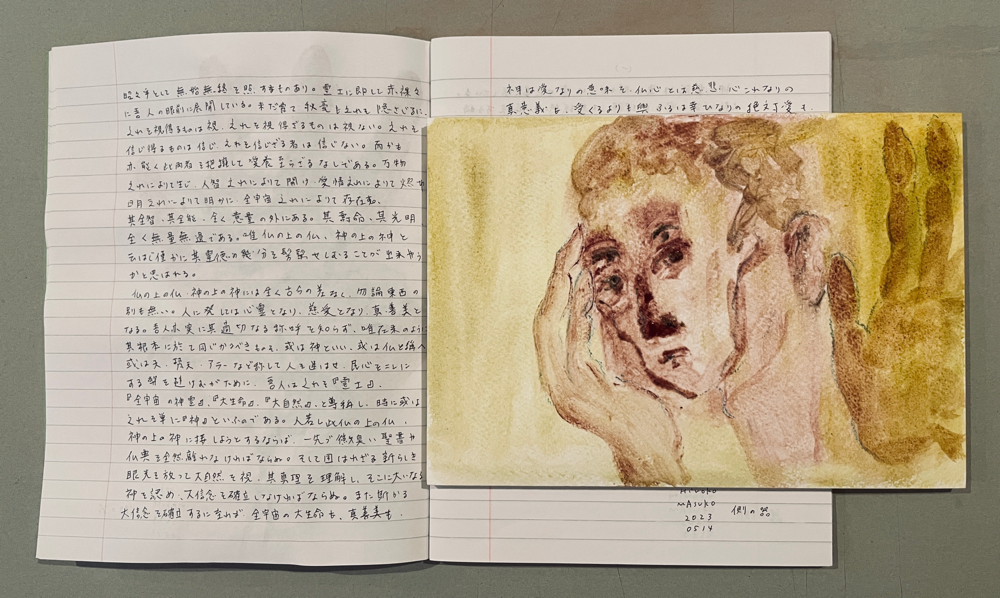 昭々乎として無始無終を照すものあり。霊土に即して赤裸々
に吾人の眼前に展開している。未だ嘗て秋毫もこれを隠さざるに、
これを視得るものは視、これを視得ざるものは視ない。これを
信じ得るものは信じ これを信じざる者は信じない。而かも
亦能く此両者を抱擁して 至らざるなしである。万物
これによりて生じ、人智これによりて開け、愛情これによりて燃
日月これによりて明かに、全宇宙これによりて存在
其全智、其全能、全く意量の外にある。其寿命、其光明
全く無量無邊である。唯仏の上の仏、神の上の神と
云はば僅かに其霊徳の幾分を髣髴せしむることが出来やう
かと思はれる。
仏の上の仏、神の上の神には全く古今の差なく、勿論東西の
別も無い。人に発しては心霊となり、慈愛となり、真善美と
なる。吾人未だ実に其適切なる称呼を知らず、唯在来のように
其根本に於て同じかるべきものを、或は神といい、或は仏と称へ
或は天、梵天、アラーなど称して人を迷はせ、民心を二にに
する弊を避けむがために、吾人はこれを『霊土』、
『全宇宙の神霊』、『大生命』、『大自然』、と尊称し、時に或は
これを単に『神』といふのである。人若し此仏の上の仏、
神の上の神に接しようとするならば、一先づ黴臭い聖書や
仏典を全然離れなければならぬ。そして囚はれざる新らしき
眼光を放って大自然を視、其真理を理解し、そこに大いなる
神を認め、大信念を確立しなければならぬ。また斯かる
大信念を確立するに至れば 全宇宙の大生命も、真善美も
神は愛なりの意味も、仏心とは慈悲心これなりの
真意義も、受くるよりも與ふるは幸ひなりの絶対愛も、
HIROKO
MASUKO
2023
0514
側の器